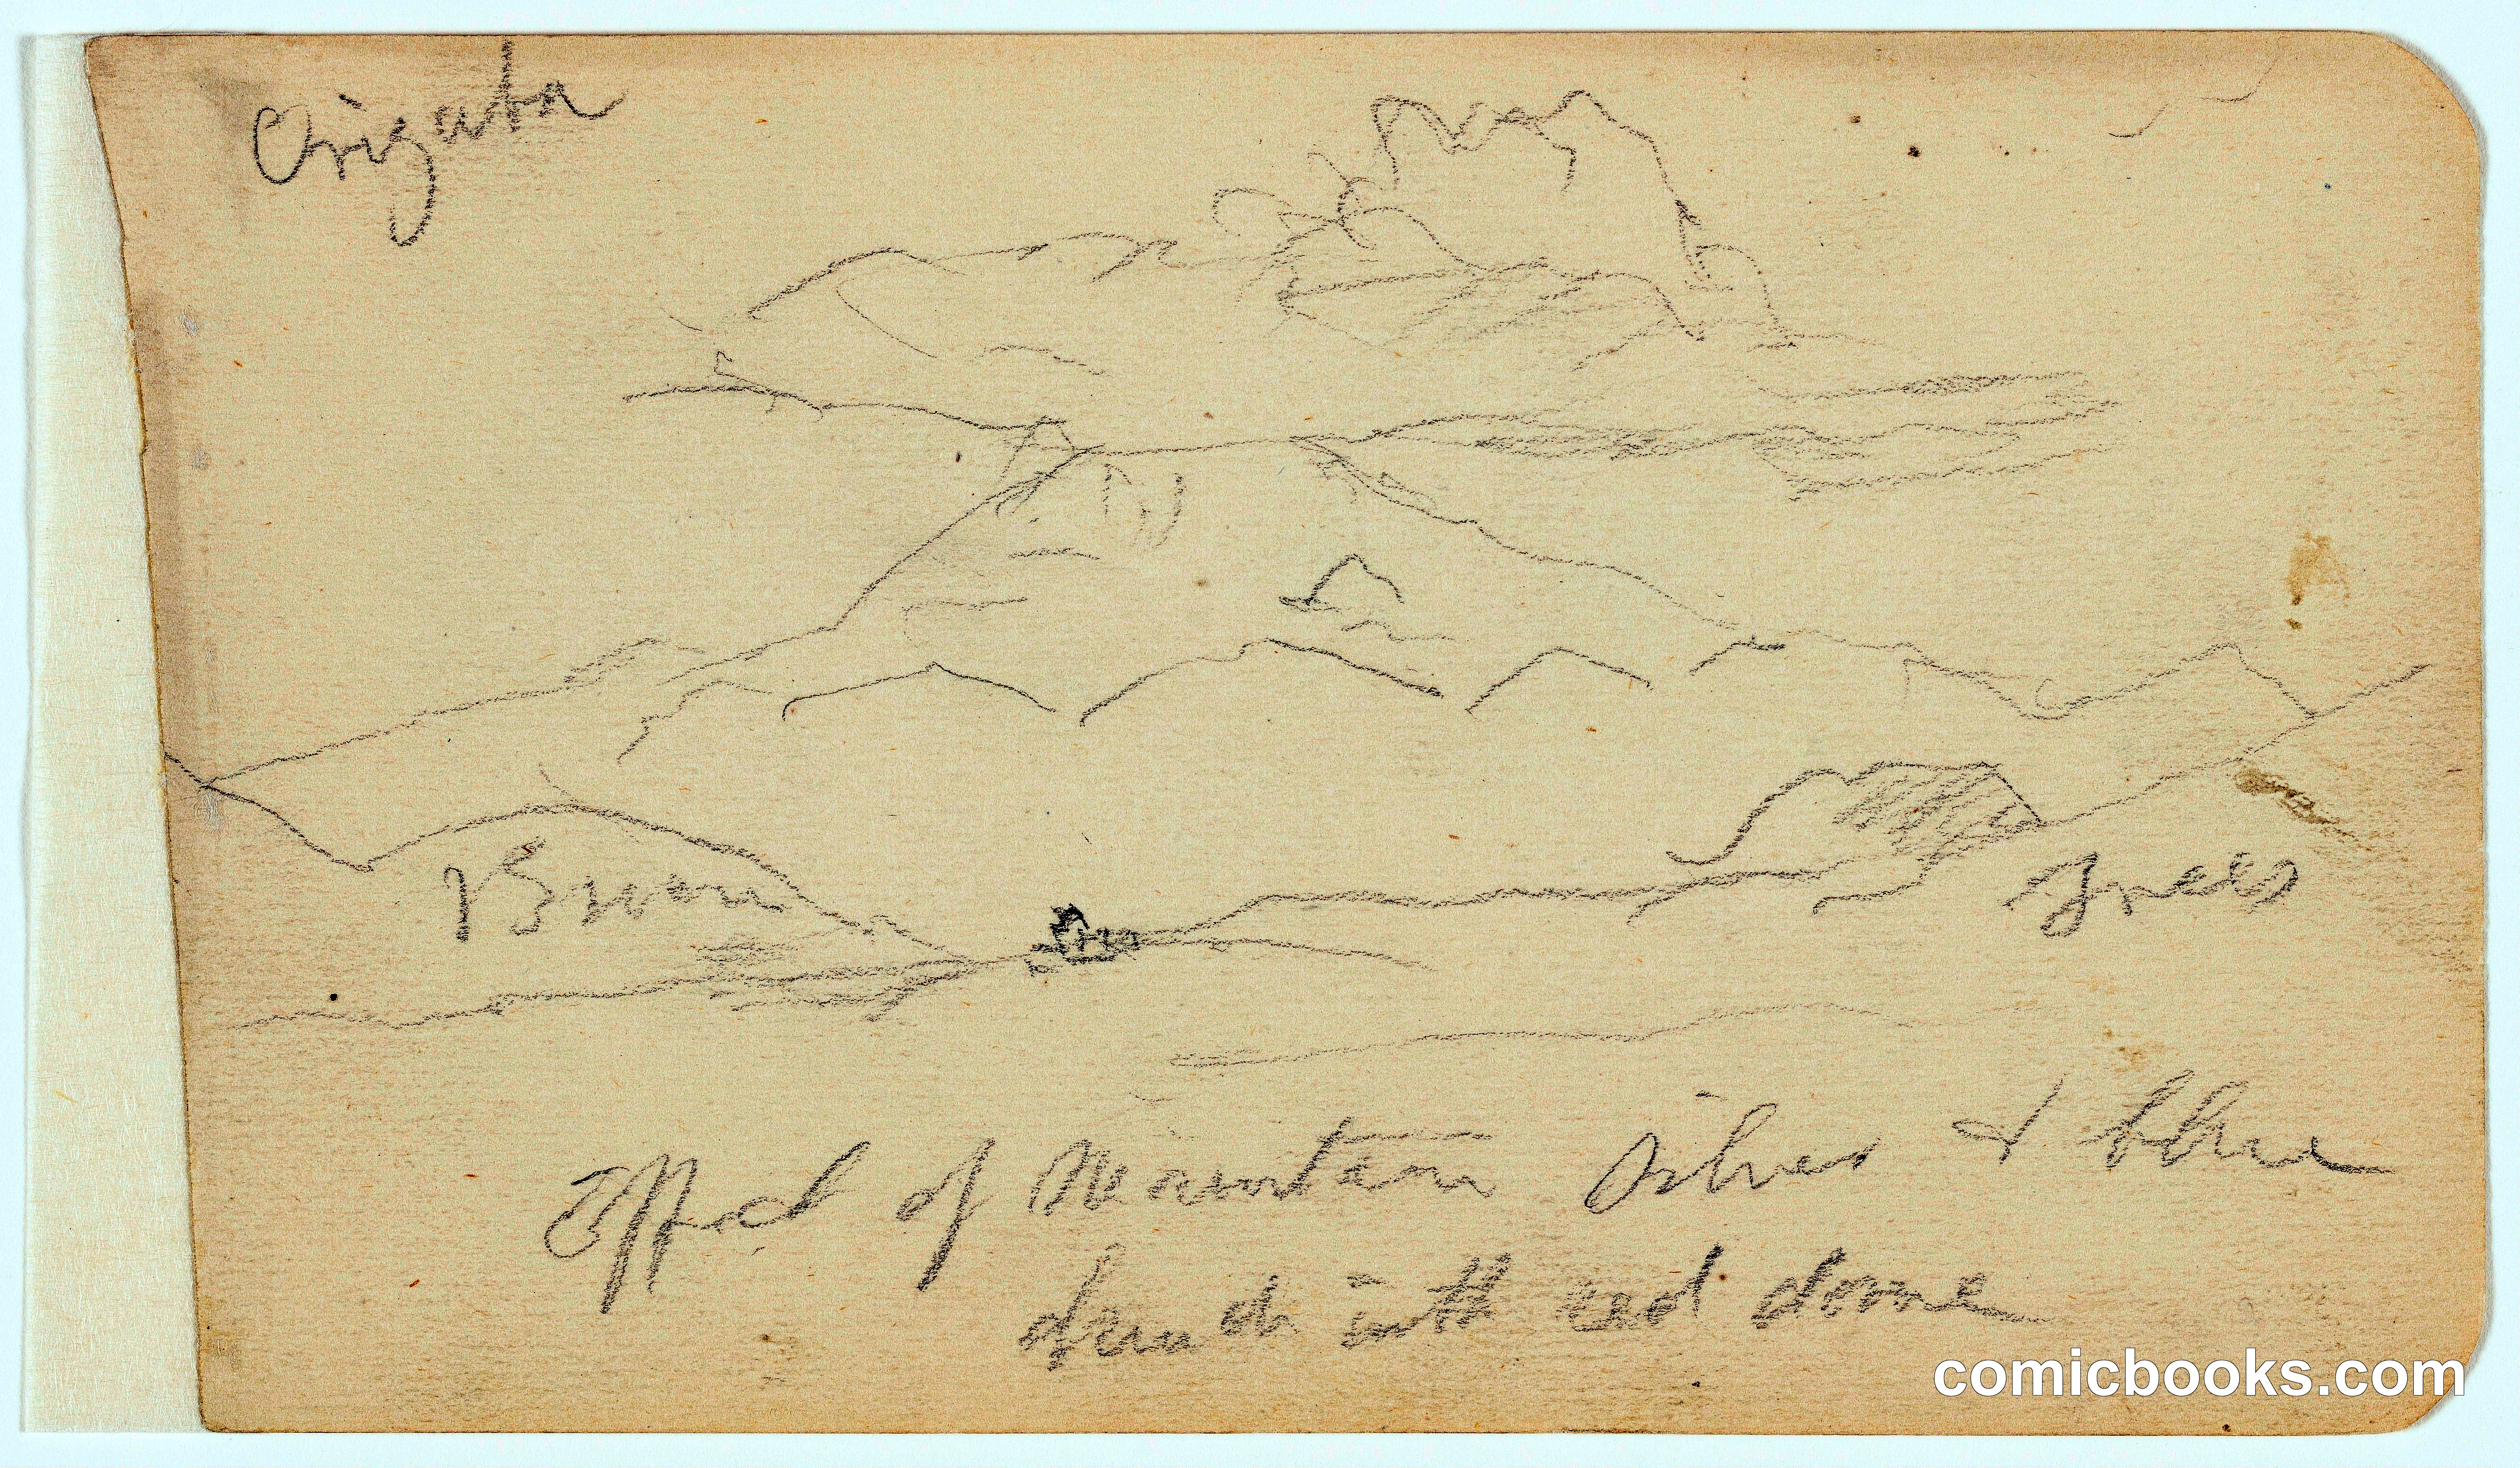 Orizaba
Brown
Green
Effect of Mountain Silver & blue
domed with red dome
comicbooks.com